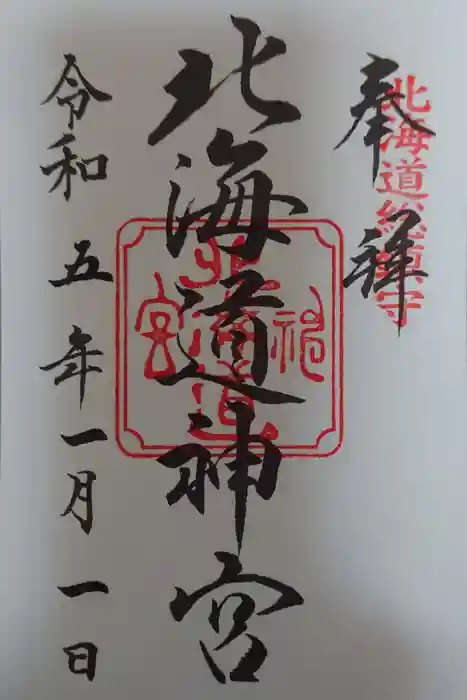 奉拝
北海道総鎮守
北海道神宮
北海道神宮
令和五年一月一日